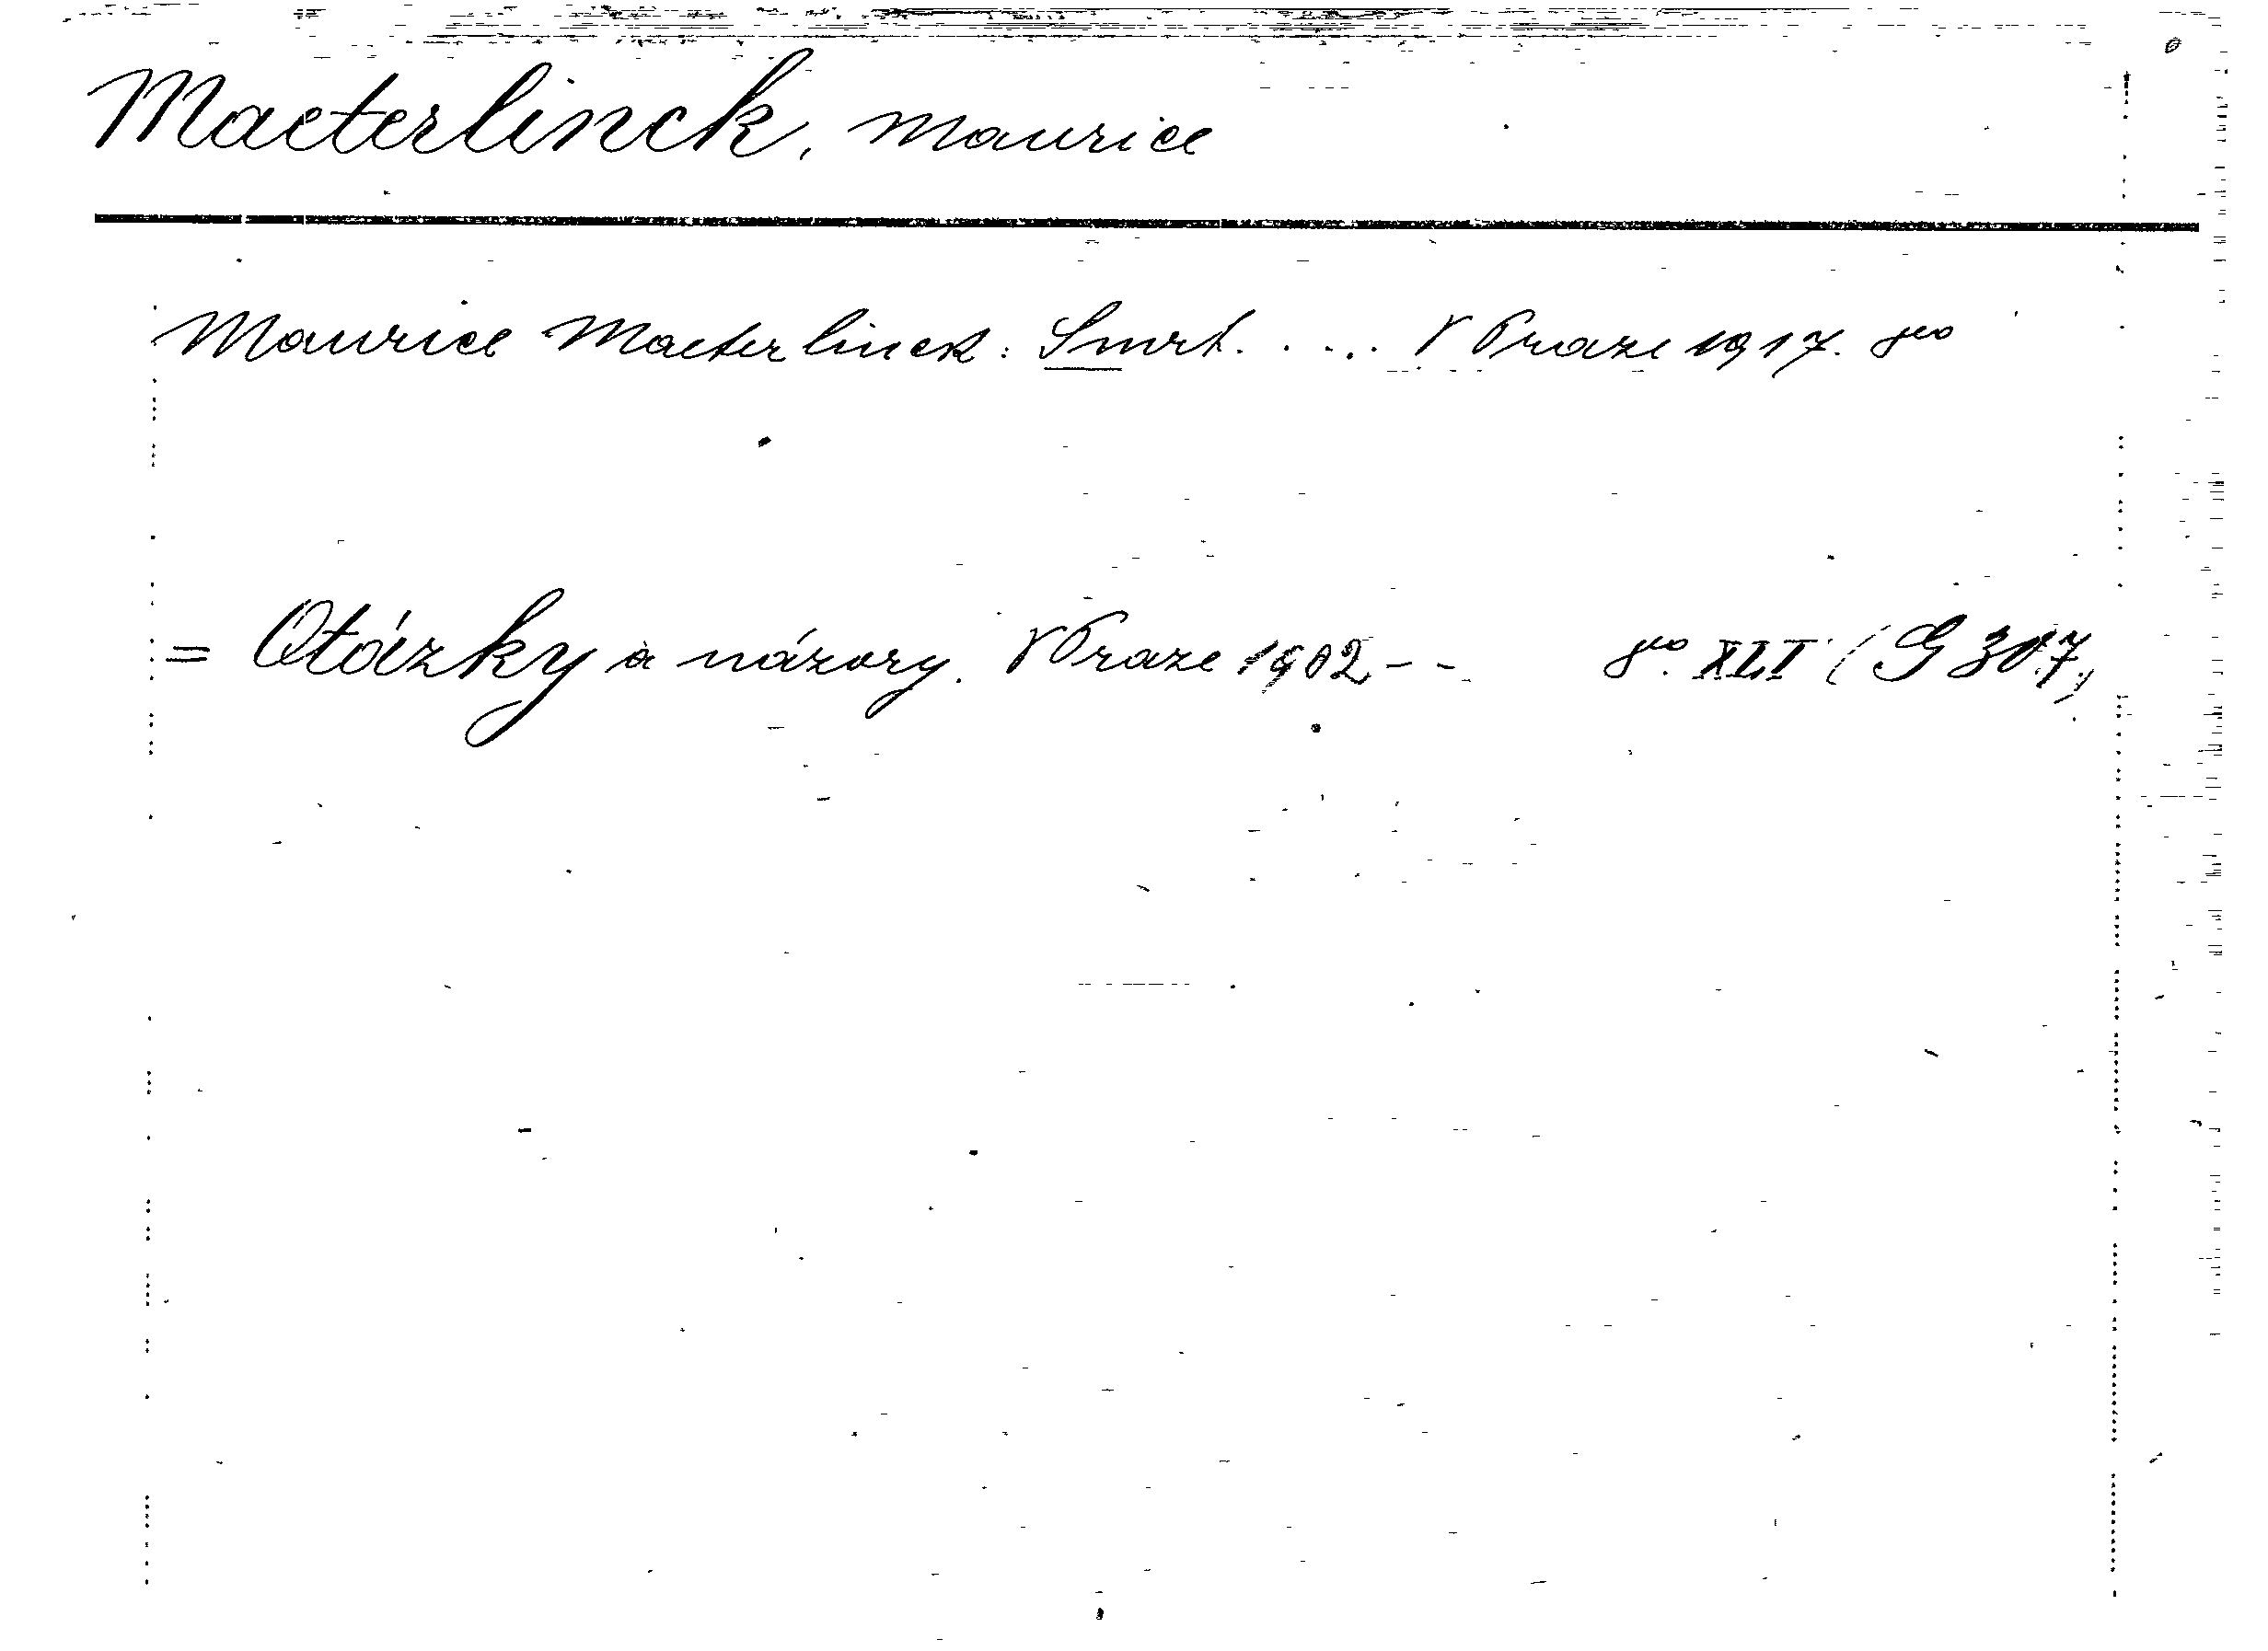 Maeterlinck, Maurice
Maurice Maeterlinck: Smrt. . ... V Praze 1917. 8vo
= Otázky a názory. V Praze 1902 - - 8vo. XLI (G 307.)